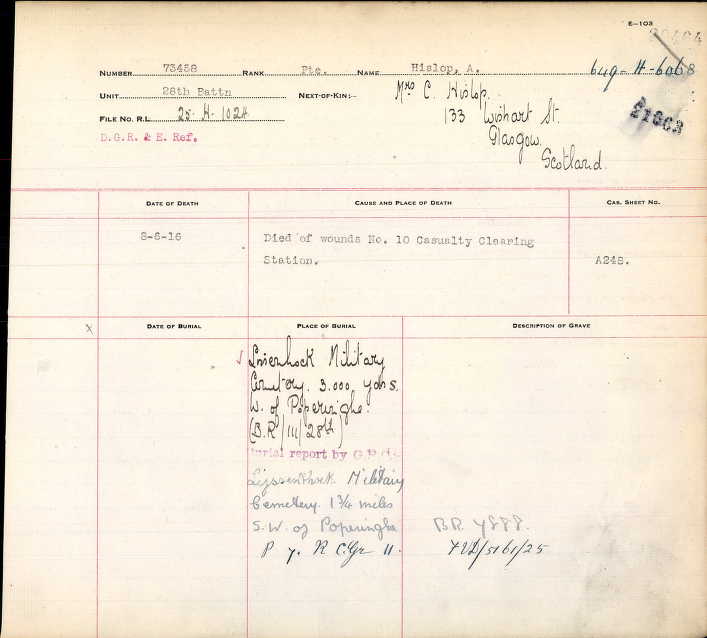 E-103
NUMBER 73458 RANK Pte. NAME Hislop, A. 649-H-6068
UNIT 28th Battn NEXT-OF-KIN:- Mrs C. Hislop
FILE NO. R.L. 25-H-1024 133 Wishart St.
D.G.R. & E. Ref. Glasgow.
Scotland.
DATE OF DEATH CAUSE AND PLACE OF DEATH CAS. SHEET NO.
8-6-16 Died of wounds No. 10 Casualty Clearing
Station. A248.
x DATE OF BURIAL PLACE OF BURIAL DESCRIPTION OF GRAVE
Military
Cemetery. 3.000 yds.
W. of Poperinghe.
(B.R/111/28th)
burial report by
Lijssenthoek Military
Cemetery. 1¾ miles
S.W. of Poperinghe BR
P 7. R C. Gr 11.